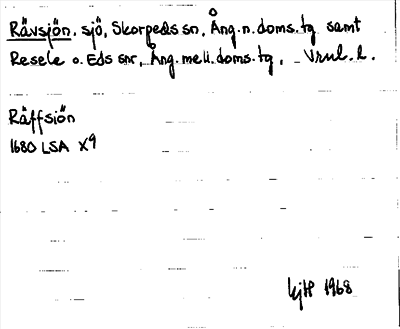 Rävsjön. sjö, Skorpeds sn, Ång.n.doms.tg samt
Resele o. Eds snr, Ång.mell.doms.tg, Vnl.l.
Räffsjön
1680 LSA X9
1968